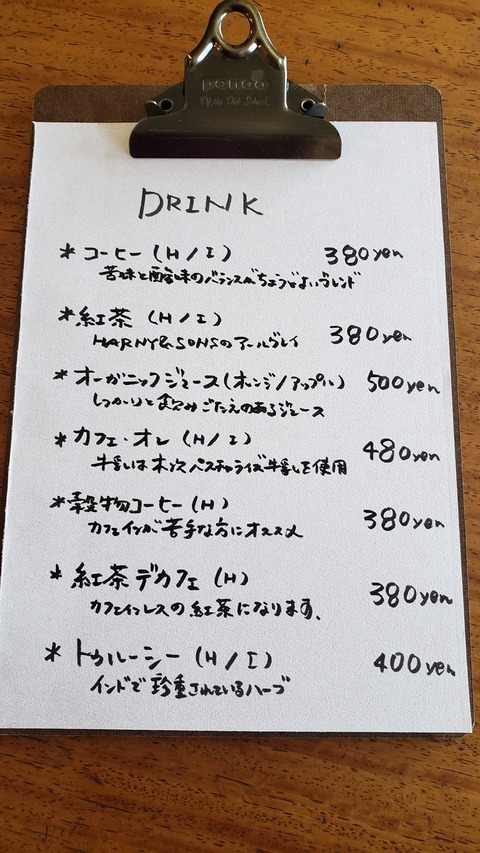 penco
Of the Old School.
DRINK
* コーヒー (H / I) 380yen
苦味と酸味のバランスがちょうどよいブレンド
* 紅茶 (H / I) 380yen
HARNY&SONSのアールグレイ
* オーガニックジュース(オレンジ/アップル) 500yen
しっかりと飲みごたえのあるジュース
* カフェ・オレ (H / I) 480yen
牛乳は木次パスチャライズ牛乳を使用
* 穀物コーヒー (H) 380yen
カフェインが苦手な方にオススメ
* 紅茶デカフェ (H) 380yen
カフェインレスの紅茶になります。
* トゥルーシー (H / I) 400yen
インドで珍重されているハーブ